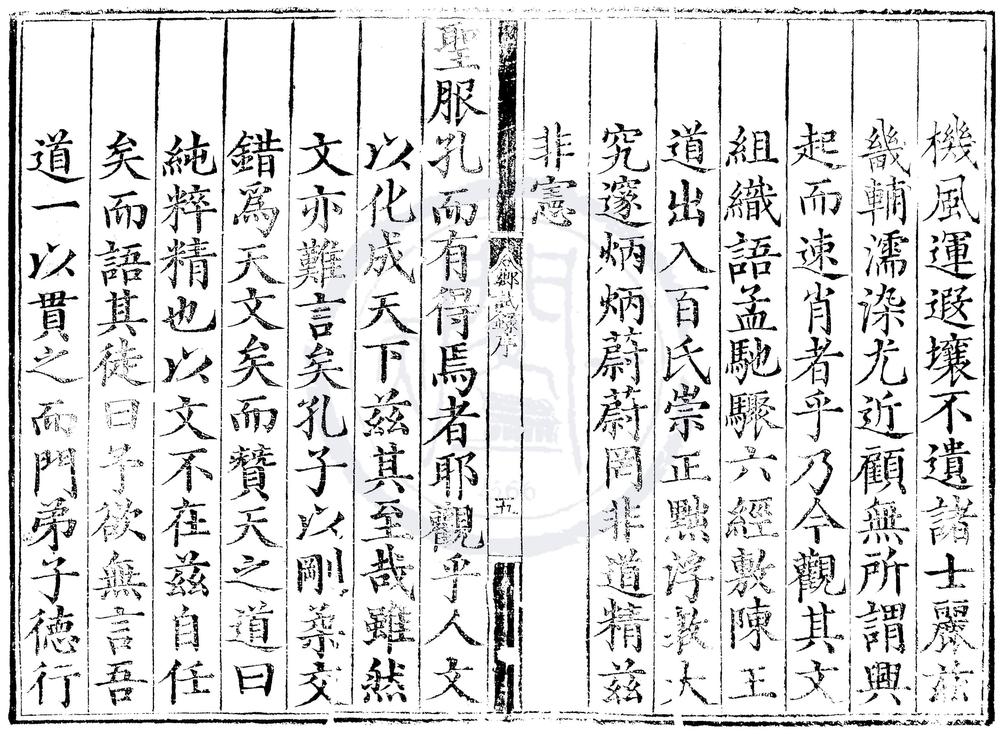 機風運遐壤不遺諸士麗茲
畿輔濡染尤近顧無所謂興
起而速肖者乎乃今觀其文
組織語孟馳驟六經敷陳王
道出入百氏崇正黜浮敦大
究邃炳炳蔚蔚罔非道精茲
非憲
鄉試錄序
五
聖服孔而有得焉者耶觀乎人文
以化成天下茲其至哉雖然
文亦難言矣孔子以剛柔交
錯為天文矣而贊天之道曰
純粹精也以文不在茲自任
矣而語其徒曰予欲無言吾
道一以貫之而門弟子德行